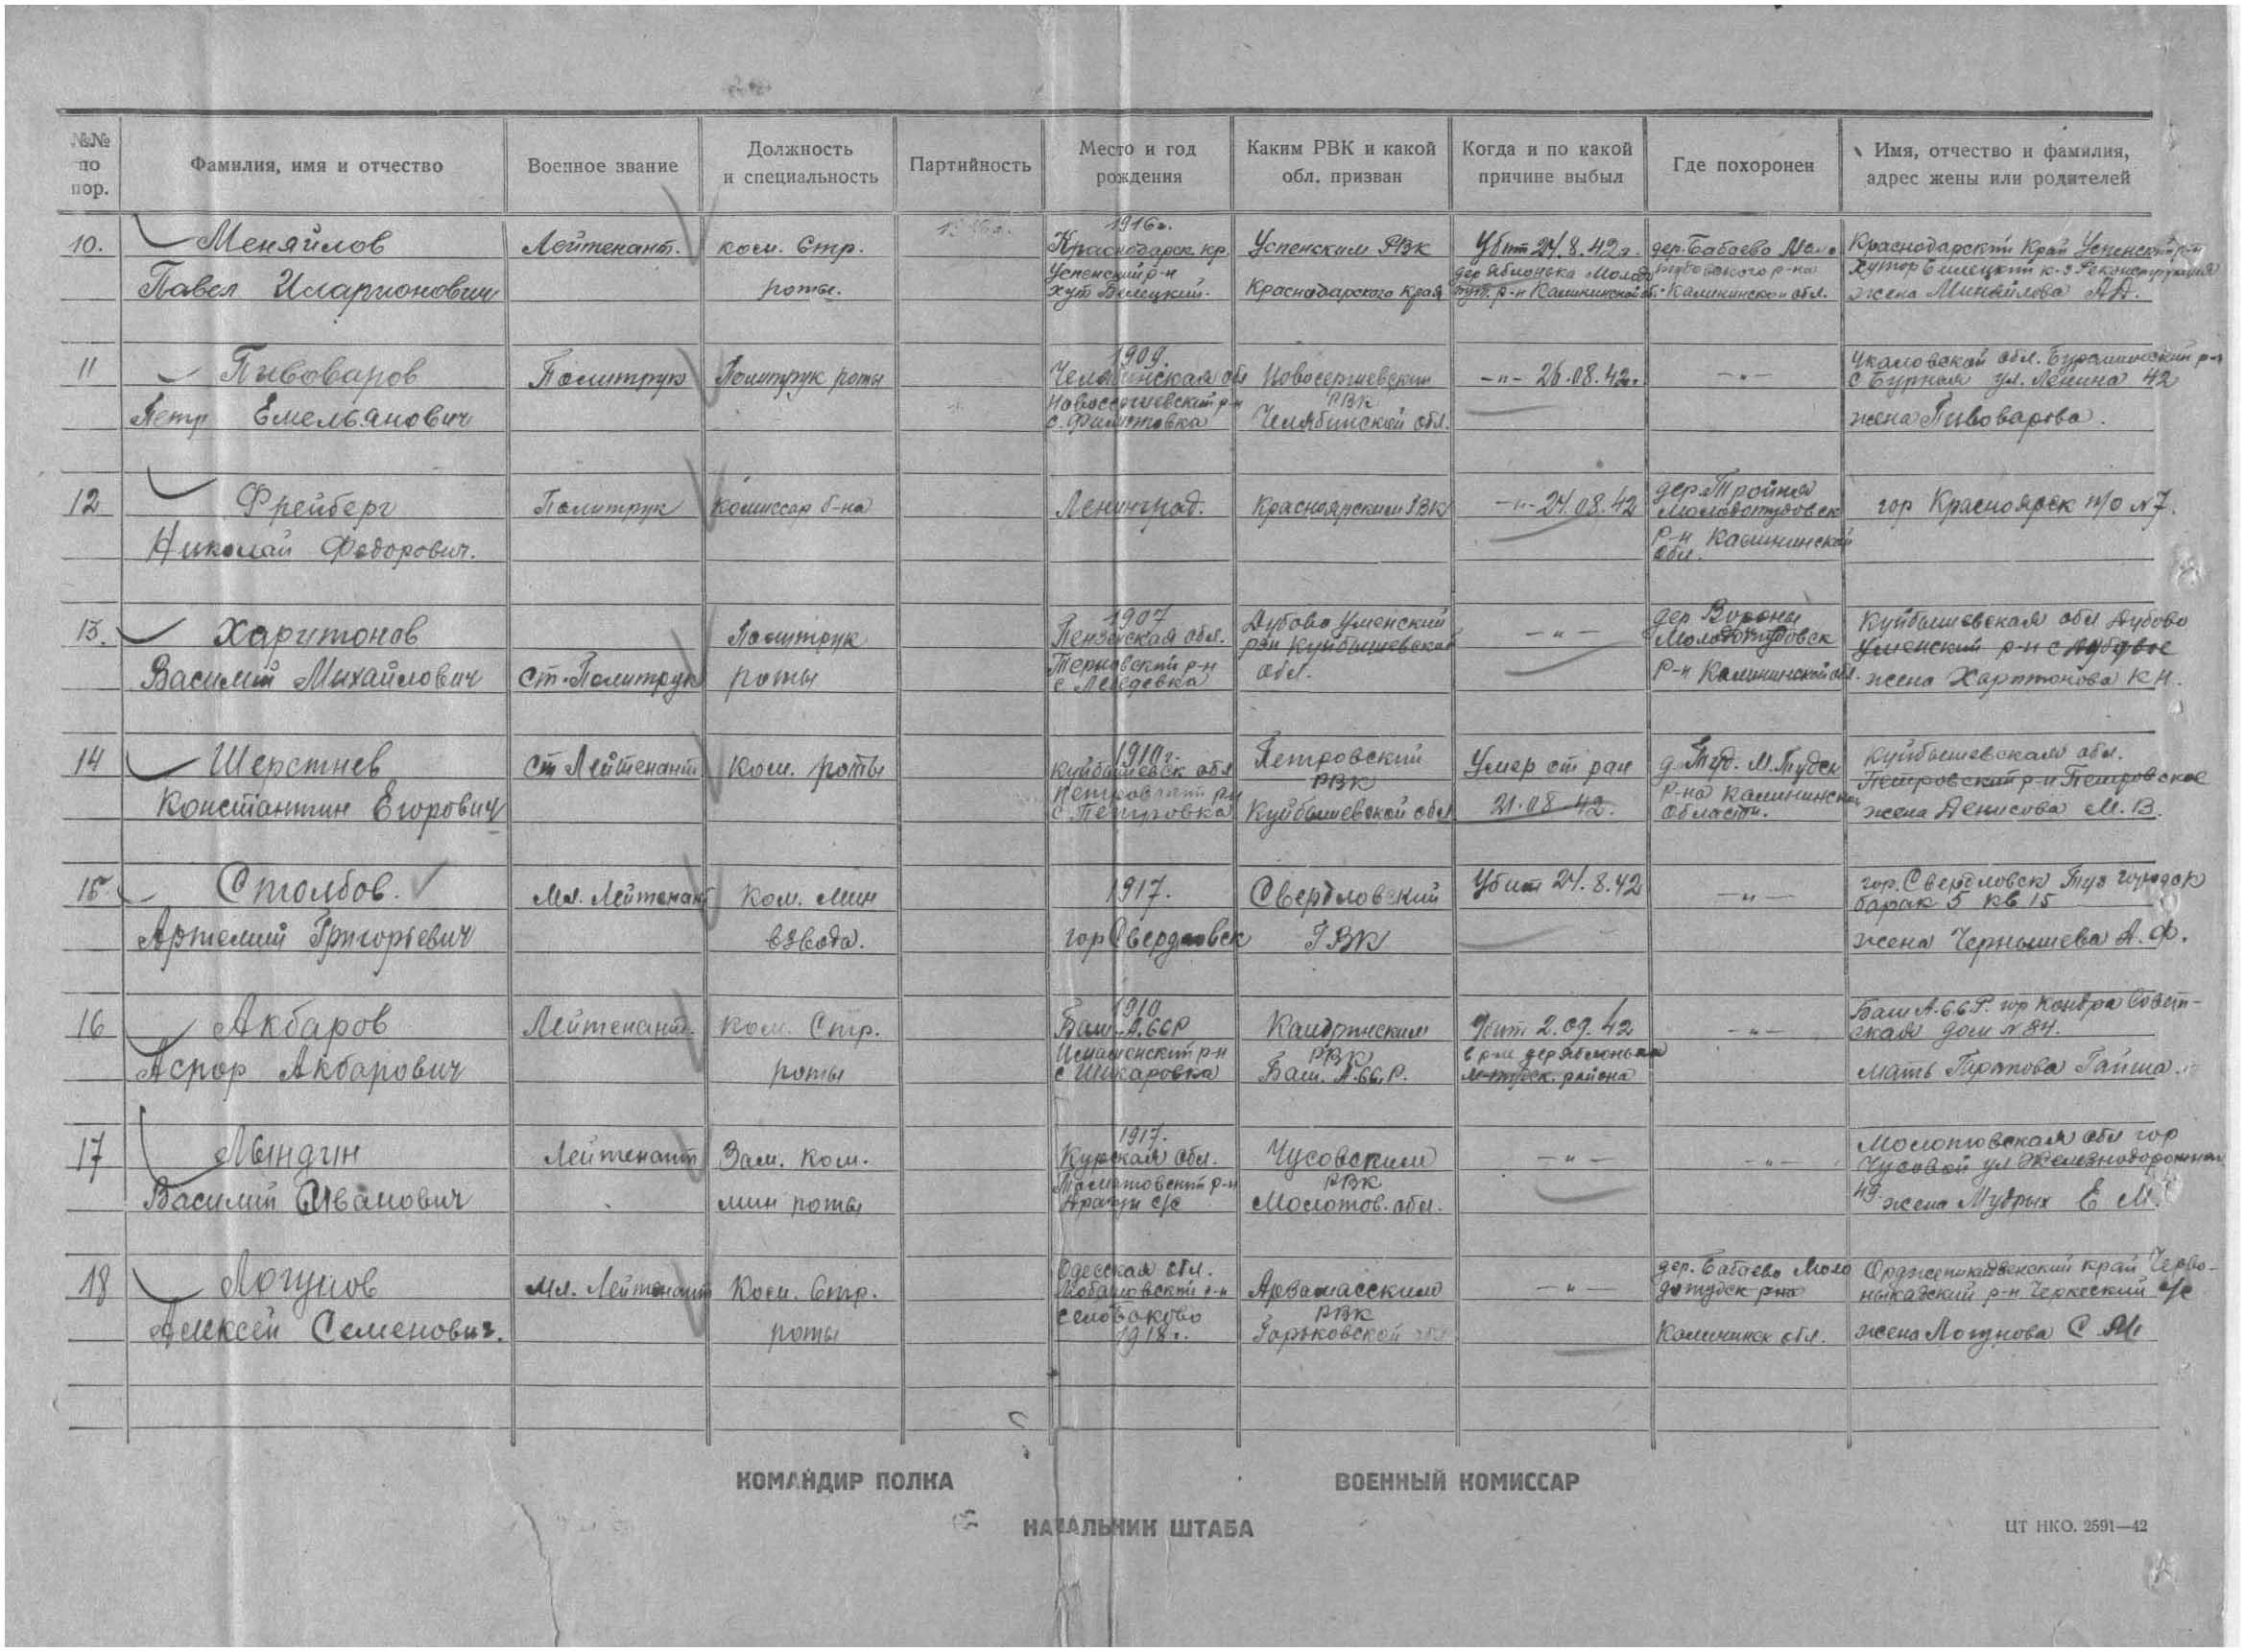 №№ по пор.
Фамилия, имя и отчество
Военное звание
Должность и специальность
Партийность
Место и год рождения
Каким РВК и какой обл. призван
Когда и по какой причине выбыл
Где похоронен
Имя, отчество и фамилия, адрес жены или родителей
10.
Меняйлов
Павел Иларионович
Лейтенант.
ком. Стр.
роты.
1916г.
Краснодарск. кр.
Успенский р-н
хут Белецкий.
Успенским РВк
Краснодарского края
Убит 24.8.42г.
дер Яблонька Молодо
туд. р-н Калининской об.
дер. Бабаево Моло
тудовского р-на
Калининской обл.
Краснодарский Край Успенский р-н
хутор Билецкий к-з Реконструкция
жена Минайлова А.А.
11
Пивоваров
Петр Емельянович
Политрук
Политрук роты
1909.
Челябинская обл
Новосергиевский р-н
с. Филиповка
Новосергиевским
РВк
Челябинской обл.
-"- 26.08.42г.
-"-
Чкаловской обл.
с Бурная ул. Ленина 42
жена Пивоварова.
12
Фрейберг
Николай Федорович.
Политрук
Комиссар б-на
Ленинград.
Красноярским РВк
-"- 24.08.42
дер. Тройня
Молодотудовск
р-н Калининской
обл.
гор Красноярск п/о №7.
13.
Харитонов
Василий Михайлович
Ст. Политрук
Политрук
роты
1907
Пензенская обл.
Терновский р-н
с Лебедевка
Дубово Уменский
рай Куйбышевская
обл.
-"-
дер Вороны
Молодотудовск
р-н Калининской обл.
Куйбышевская обл Дубово
Уменский р-н с Дубовое
жена Харитонова К Н.
14
Шерстнев
Константин Егорович
Ст Лейтенант
Ком. роты
1910г.
Куйбышевск обл
Петровский р-н
с Петровка
Петровский
РВк
Куйбышевской обл
Умер от ран
21.08.42.
д. Туд. М.Тудск
р-на Калининской
области.
Куйбышевская обл.
Петровский р-н Петровское
жена Денисова М.В.
15
Столбов.
Артемий Григорьевич
Мл. Лейтенант
Ком. мин
взвода.
1917.
гор Свердловск
Свердловский
ГВК
Убит 24.8.42
-"-
гор. Свердловск городок
барак 5 кв 15
жена Чернышева А.Ф.
16
Акбаров
Аспор Акбарович
Лейтенант.
Ком. Стр.
роты
1910
Баш. А.ССР
с Шикаровка
Кандринским
РВК
Баш. А.СС.Р.
Убит 2.09.42
в р-не дер Яблонька
района
-"-
Баш А.ССР. гор Кандра Совет-
ская дом №84.
мать Гарипова Гайша.
17
Лындин
Василий Иванович
Лейтенант
Зам. Ком.
мин роты
1917.
Курская обл.
с/с
Чусовским
РВК
Молотов. обл.
-"-
-"-
Молотовская обл гор
Чусовой ул Железнодорожная
49 жена Мудрых Е М.
18
Логунов
Алексей Семенович.
Мл. Лейтенант
Ком. Стр.
роты
Одесская обл.
Любашовский р-н
село Боково
1918г.
Арзамасским
РВК
Горьковской обл
-"-
дер. Бабаево Моло
дотудск р-на
Калининск обл.
Орджоникидзевский край Черво-
р-н Черкеский с/с
жена Логунова С М
КОМАНДИР ПОЛКА
ВОЕННЫЙ КОМИССАР
НАЧАЛЬНИК ШТАБА
ЦТ НКО. 2591—42